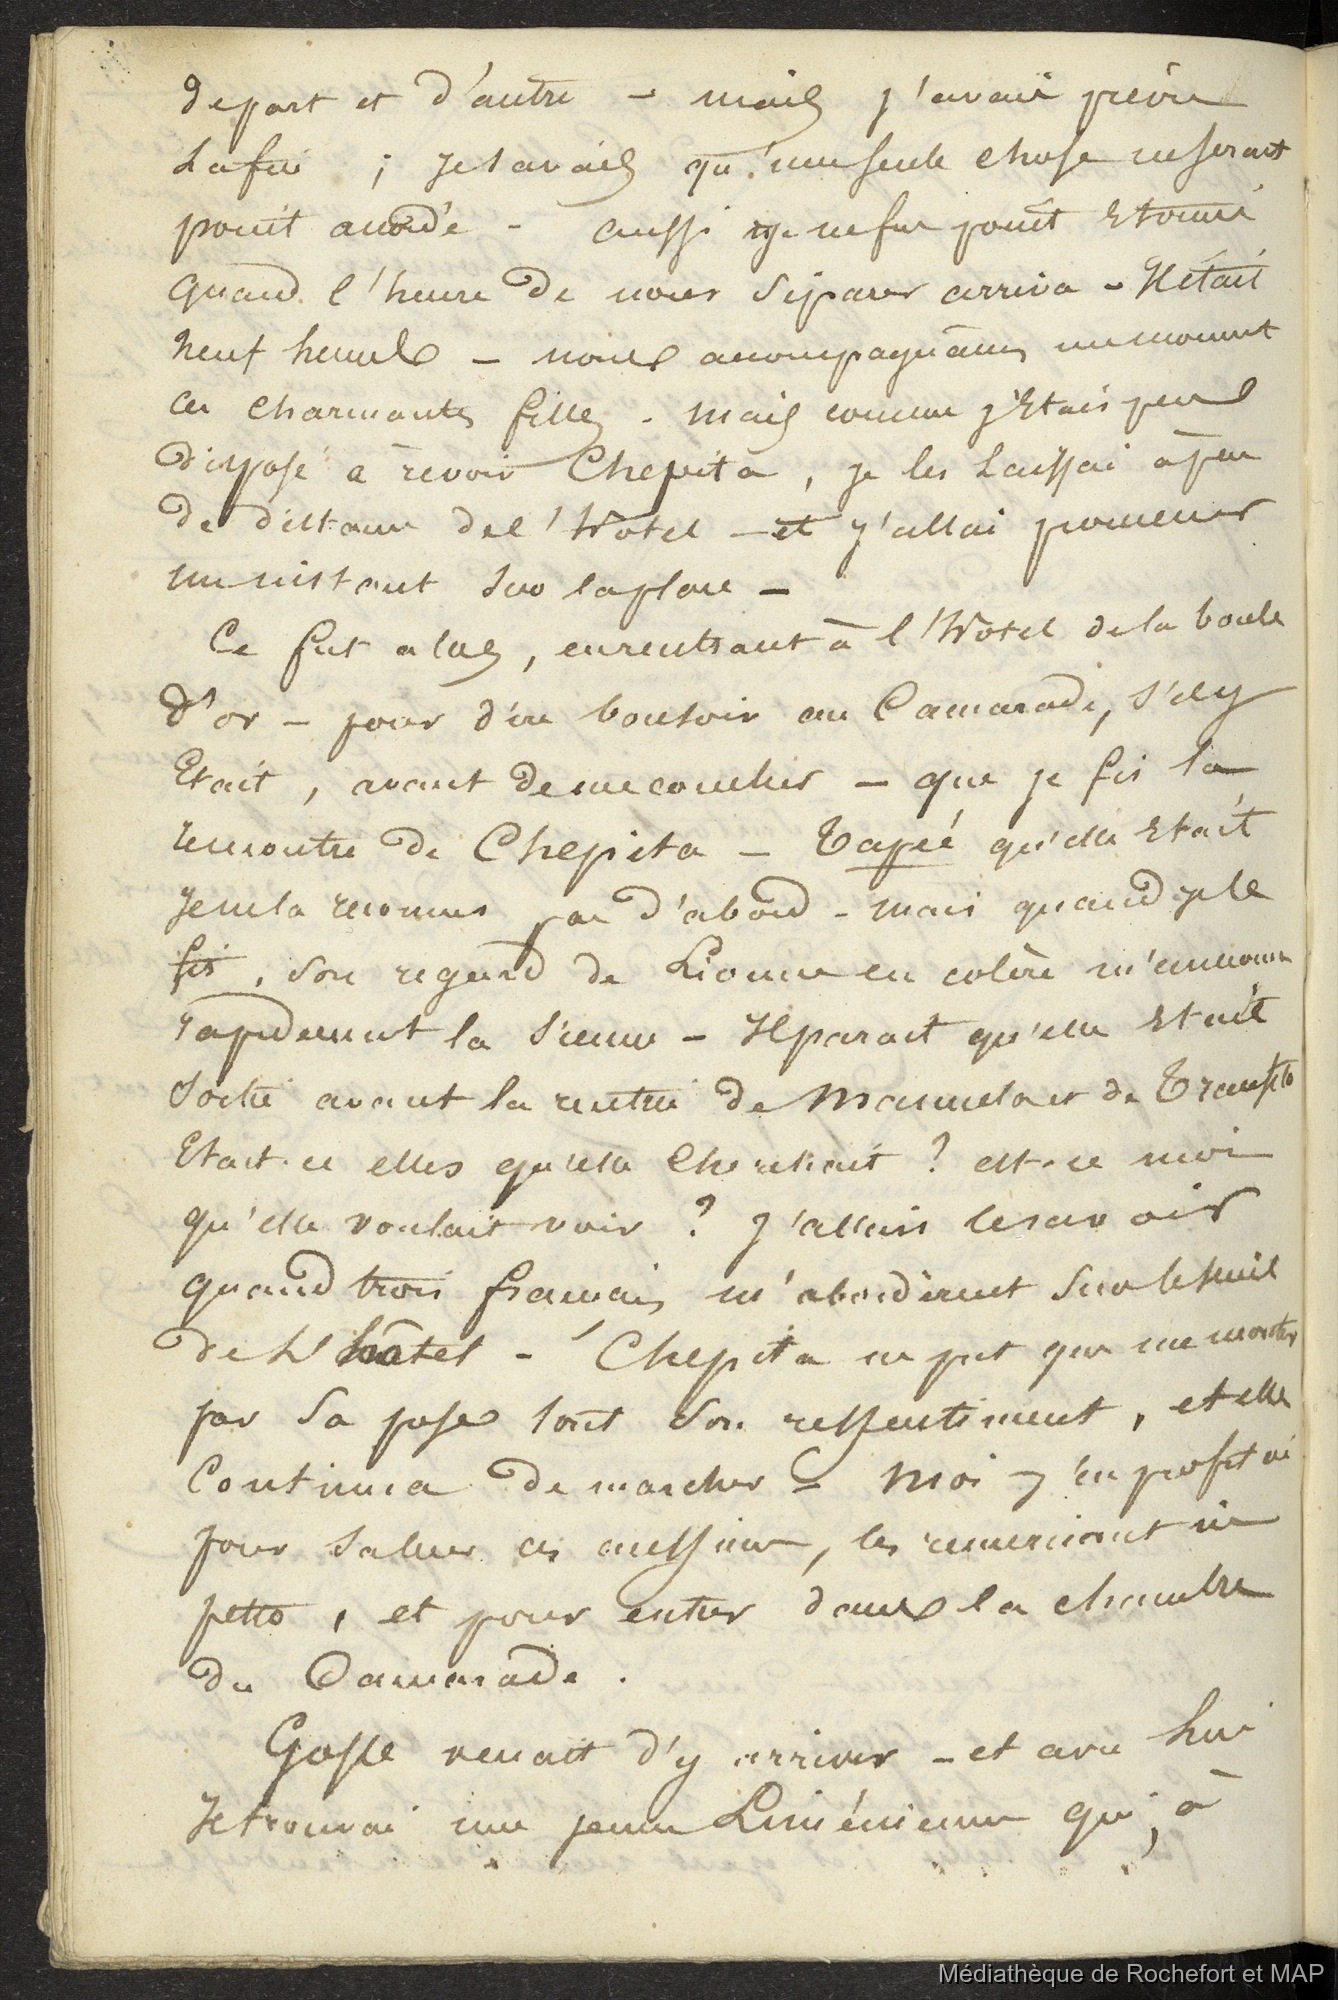 de part et d'autre – mais j'avais prévu
la fin ; je savais qu'une seule chose ne serait
point accordée – aussi je ne fus point étonné
quand l'heure de nous séparer arriva – Il était
neuf heures – nous accompagnâmes un moment
ces charmantes filles – mais comme j'étais peu
disposé à revoir Chepita, je les laissai à peu
de distance de l'Hotel – et j'allai promener
un instant sur la place –
Ce fut alors, en rentrant à l'Hotel de la boule
d'or – pour dire bonsoir au Camarade, s'il y
Etait, avant de me coucher – que je fis la
rencontre de Chepita – Tapée qu'elle était
Je ne la reconnus pas d'abord – mais quand je le
fis, son regard de Lionne en colère m'annonça
rapidement la sienne – Il parait qu'elle était
sortie avant la rentrée de Manuela et de Transito
Etait-ce elles qu'elle cherchait ? est-ce moi
qu'elle voulait voir ? J'allais le savoir
quand trois français m'abordèrent sur le seuil
de l'hôtel – Chepita ne put que me montrer
par sa pose tout son ressentiment, et elle
continua de marcher – Moi j'en profitai
pour saluer ces messieurs, les remerciant in
petto, et pour entrer dans la chambre
du Camarade.
Gosse venait d'y arriver – et avec lui
Je trouvai une jeune Liménienne qui, à